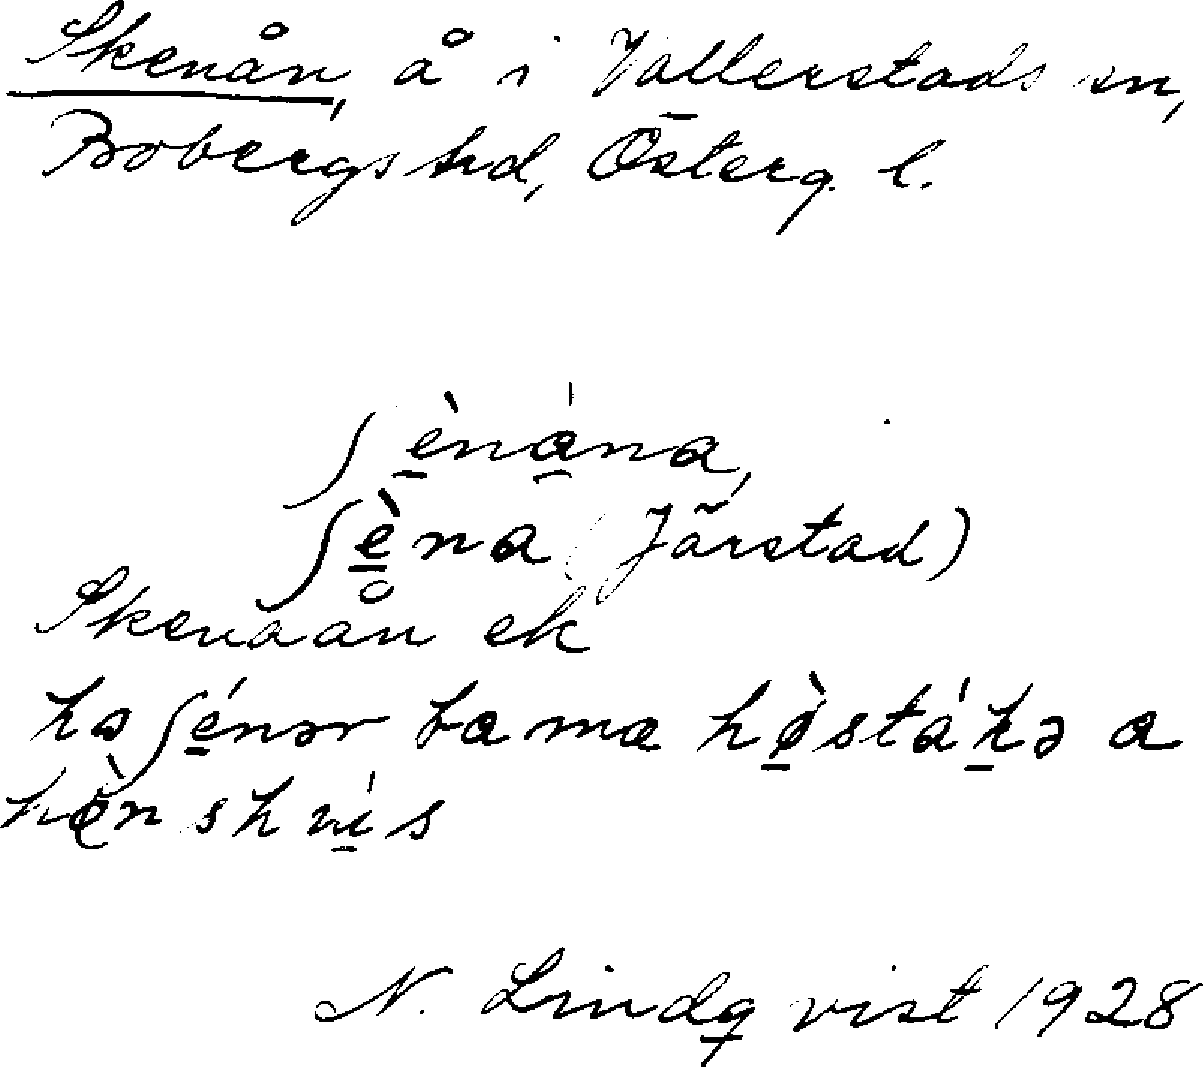 Skenån, å i Vallerstads sn,
Bobergs hd, Österg. l.
ʃènána,
ʃèna (Järstad)
Skenaån ek
ha ʃénər ba ma hø̀stáhə a
n s h vís
N. Lindqvist 1928